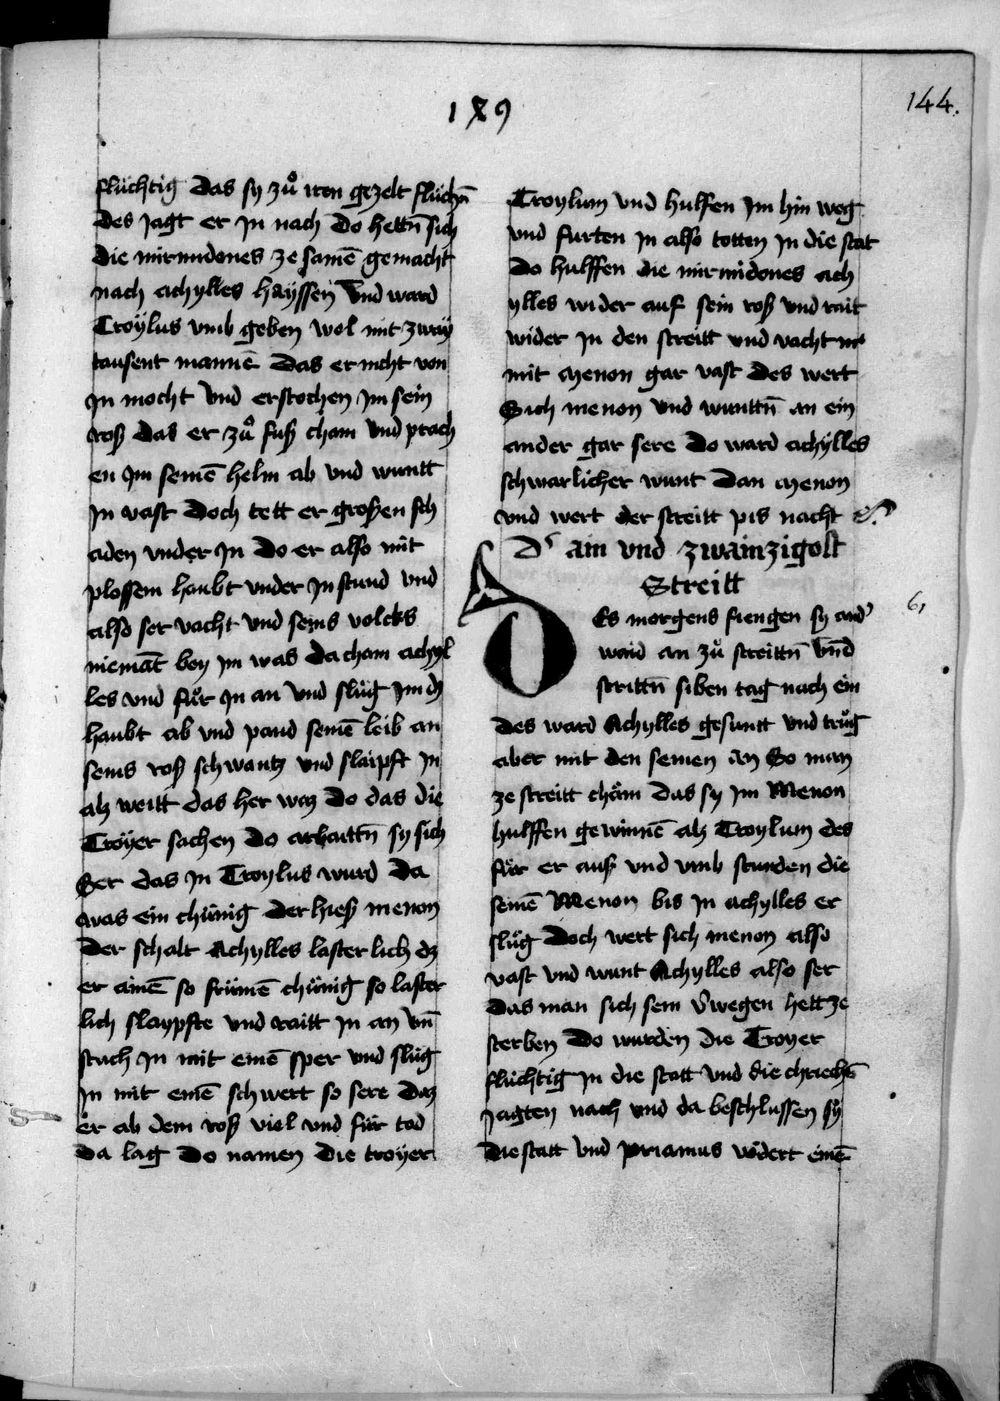 1𝑋9
144.
flüchtig das sy zů iren gezelt flüchñ
des jagt er jn nach do hettñ sich
die mirmidones ze samē gemacht
nach achylles haÿssen vnd ward
Troÿlus vmb geben wol mit zwaÿ
tausent mannē das er nicht von
jn mocht vnd erstochen jm sein
roß das er zů fuß cham vnd prach
en jm seinē helm ab vnd wuntt
jn vast doch tett er großen sch
aden vnder jn do er also mit
plossem haubt vnder jn stund vnd
also ser vacht vnd seins volcks
niemāt bey jm was da cham achyl
les vnd fůr jn an vnd slůg jm dz
haubt ab vnd pand seinē leib an
seins roß schwantz vnd slaipft jn
alz weitt das her waz do das die
Troÿer sachen do arbaittñ sy sich
Ser das jn Troylus wurd da
was ein chünig der hieß menon
der schalt Achylles laster lich dz
er ainē so frümē chünig so laster
lich slaypfte vnd raitt jn an vñ
stach jn mit einē sper vnd slůg
jn mit einē schwert so sere daz
er ab dem roß viel vnd für tod
da lag do namen die troyer
Troylum vnd hulfen jm hin weg
vnd furten jn also totten jn die stat
do hulffen die mirmidones ach
ylles wider auf sein roß vnd rait
wider jn den streitt vnd vacht
mit menon gar vast des wert
Sich menon vnd wunttñ an ein
ander gar sere do ward achylles
schwarlicher wunt dan menon
vnd wert der streitt pis nacht
Dˢ ain vnd zwainzigost
Streitt
DEs morgens fiengen sy andˀ
waid an zů streittñ vnd
strittñ siben tag nach ein
des ward Achylles gesuntt vnd trůg
aber mit den seinen an So man
ze streitt chäm das sy jm Menon
hulffen gewinnē alz Troylum des
fůr er auß vnd vmb stunden die
seinē Menon bis jn achylles er
slůg doch wert sich menon also
vast vnd wunt Achylles also ser
das man sich sein v̈wegen hett ze
sterben do wurden die Troyer
flüchtig jn die statt vnd die chriechē
jagten nach vnd da beschlussen sÿ
die statt vnd priamus vödert einē
61